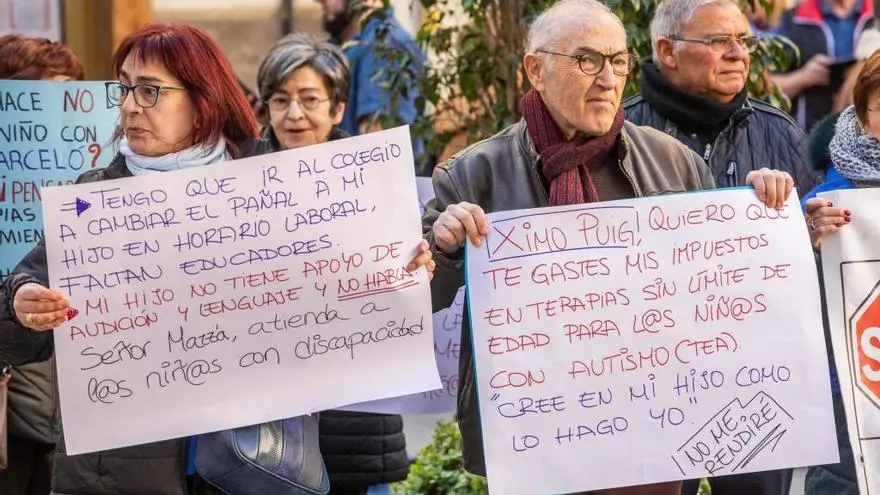 HACE NO
NIÑO CON
ARCELÓ?
TENGO QUE IR AL COLEGIO
A CAMBIAR EL PAÑAL A MI
HIJO EN HORARIO LABORAL,
FALTAN EDUCADORES.
MI HIJO NO TIENE APOYO DE
AUDICIÓN Y LENGUAJE Y NO HABLA
Señor Mazzá, atienda a
l@s niñ@s con discapacidad
XIMO PUIG, QUIERO QUE
TE GASTES MIS IMPUESTOS
EN TERAPIAS SIN LÍMITE DE
EDAD PARA L@S NIÑ@S
CON AUTISMO (TEA).
"CREE EN MI HIJO COMO
LO HAGO YO"
¡NO ME
RENDIRÉ
S